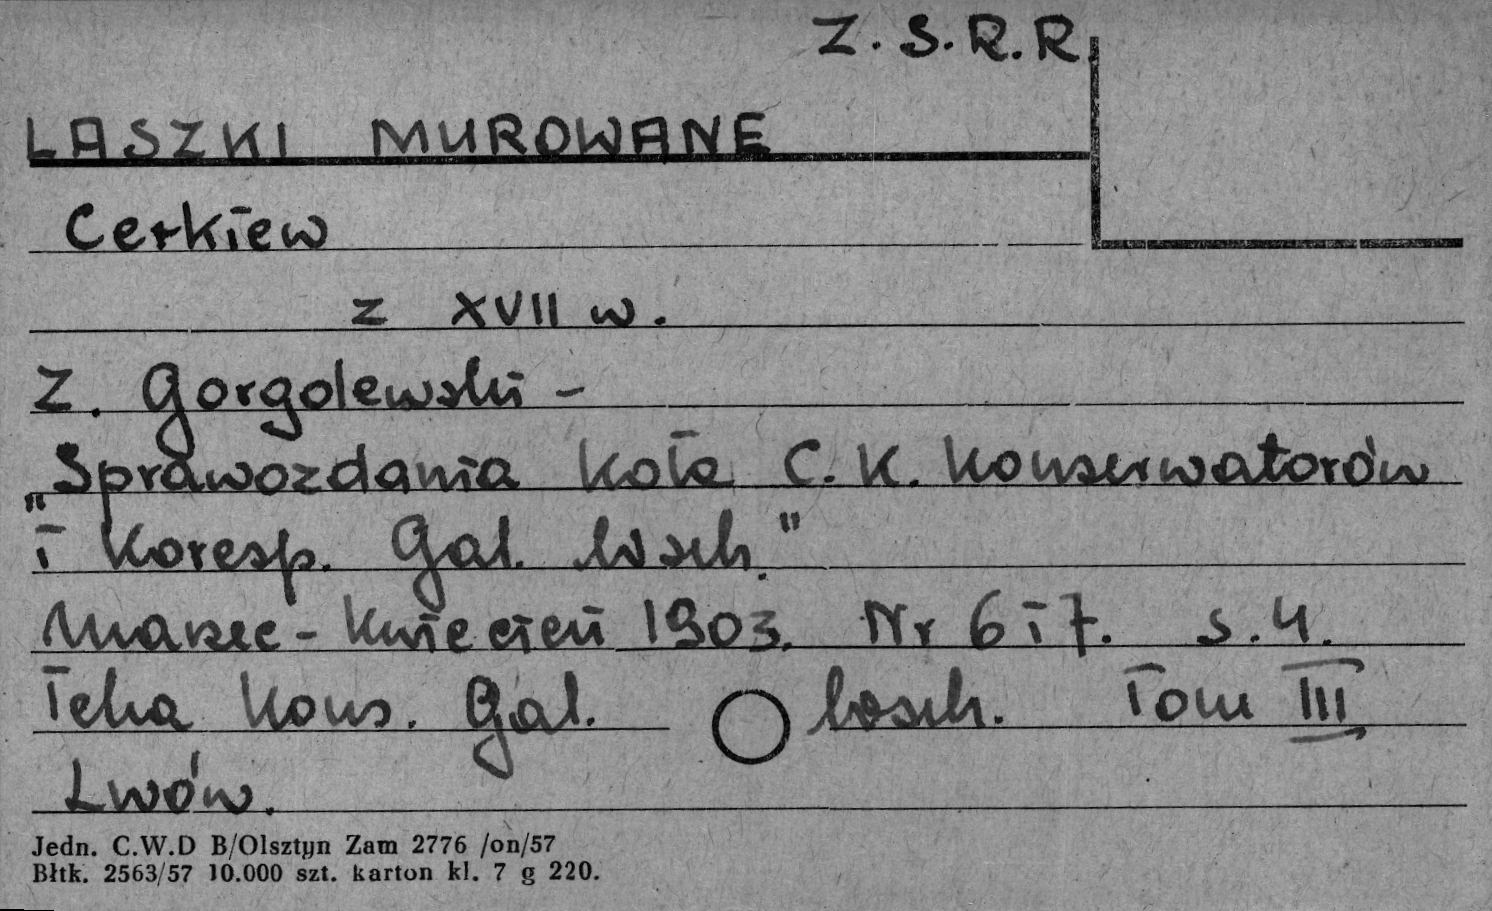 Z. S. R. R.
LASZKI MUROWANE
Cerkiew
z XVII w.
Z. Gorgolewski -
„Sprawozdania Koła C. K. Konserwatorów
i Koresp. Gal. Wsch."
Marzec - Kwiecień 1903. Nr 6 i 7. s. 4.
Teka Kons. Gal. Wsch. Tom III
Lwów.
Jedn. C.W.D B/Olsztyn Zam 2776 /on/57
Błtk. 2563/57 10.000 szt. karton kl. 7 g 220.